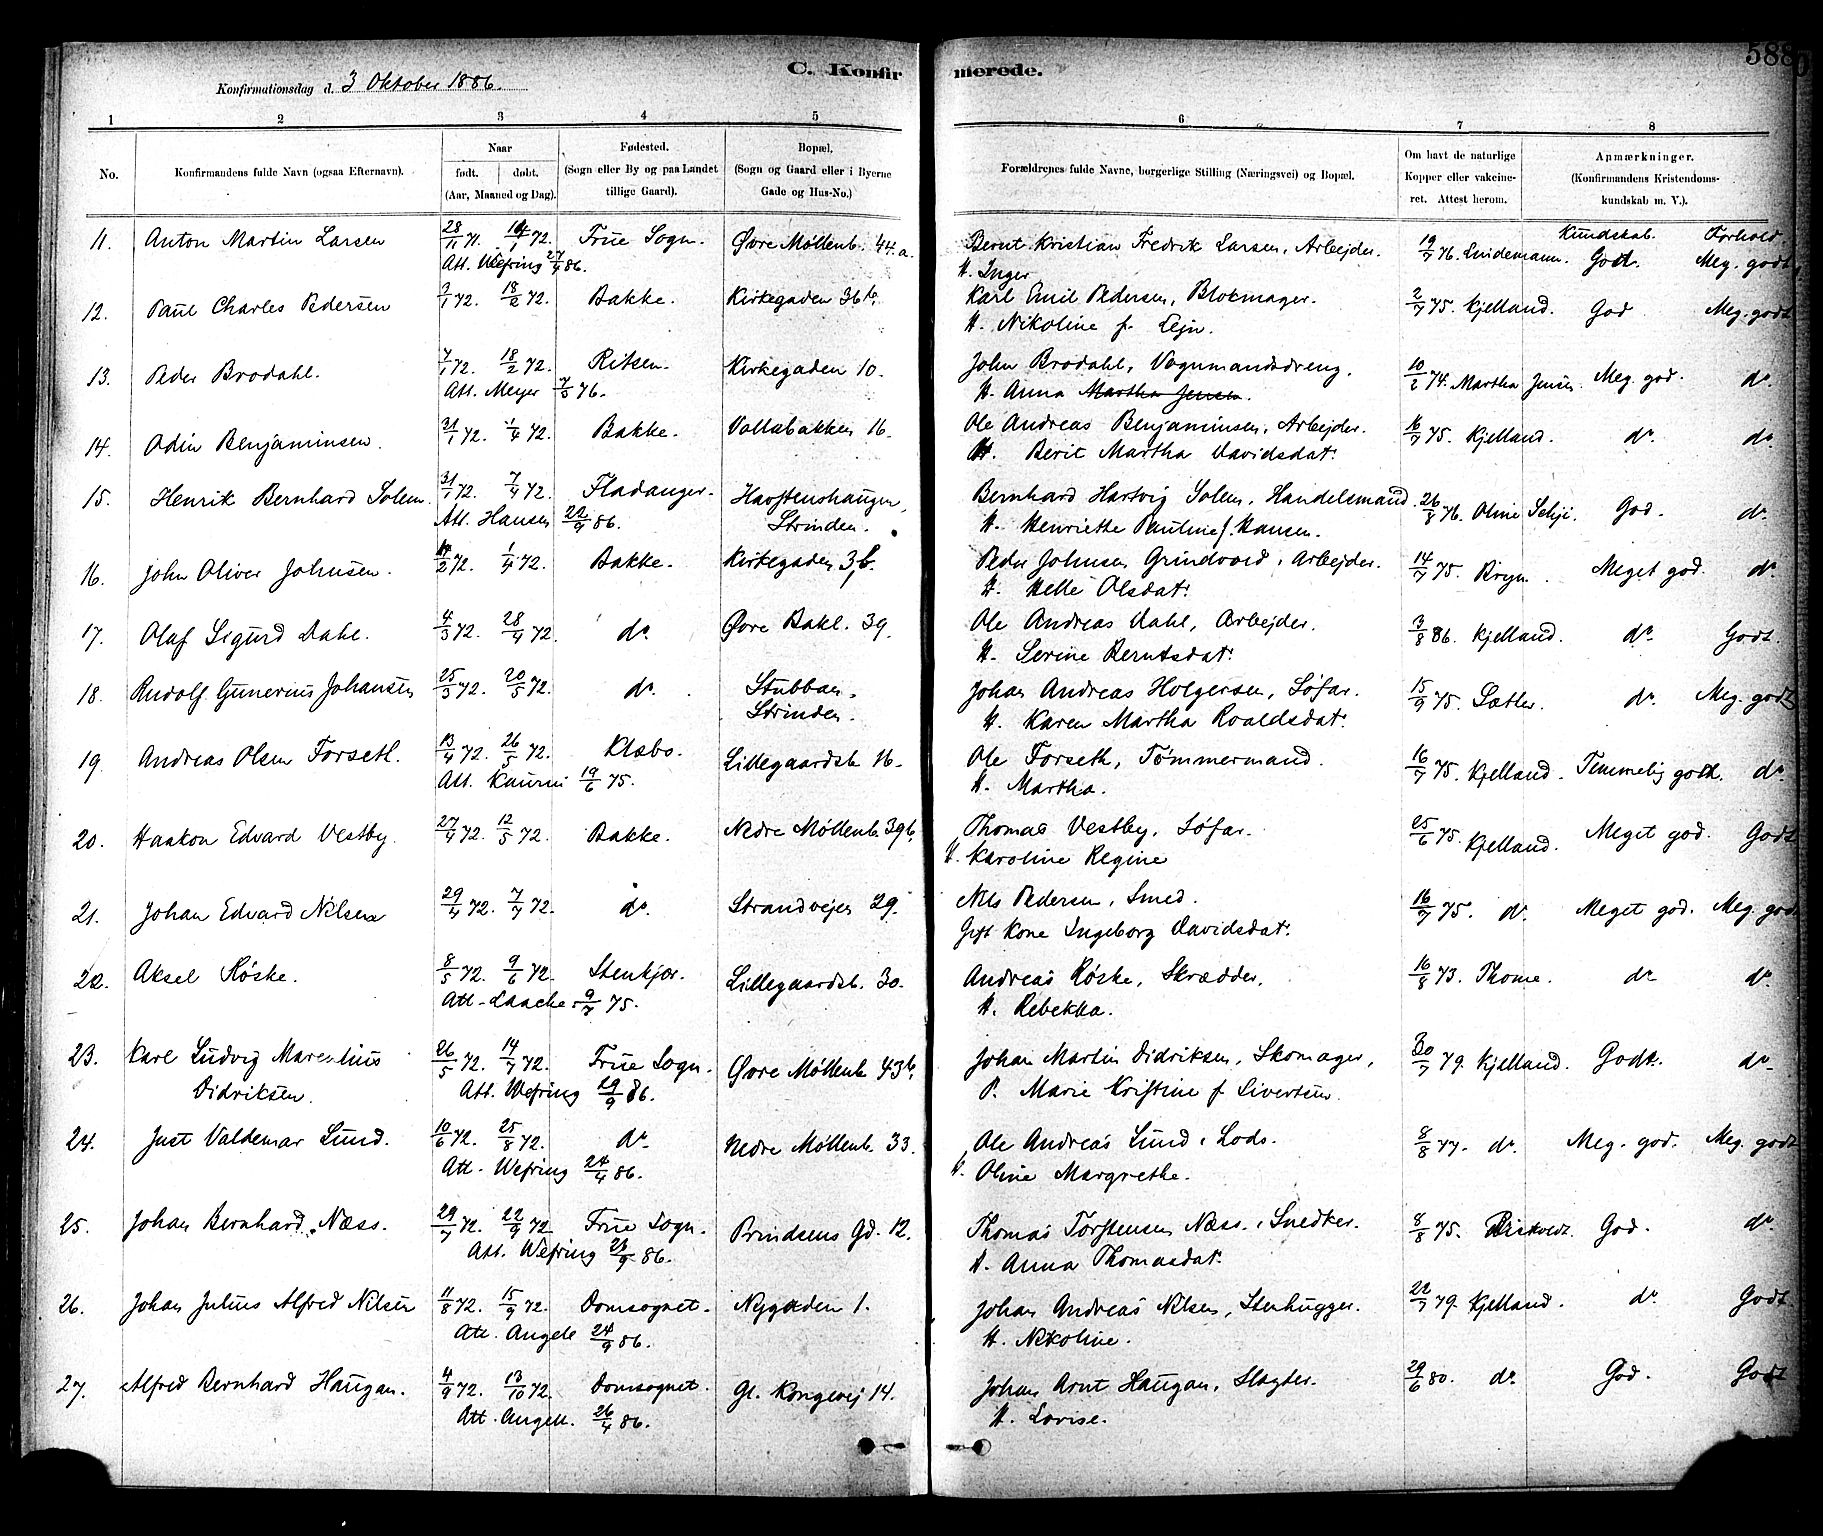 588
C. Konfirmerede.
Konfirmationsdag d. 3 Oktober 1886.
1 2 3 4 5 6 7 8
No. Konfirmandens fulde Navn (ogsaa Efternavn). Naar født. døbt. (Aar, Maaned og Dag). Fødested. (Sogn eller By og paa Landet tillige Gaard). Bopæl. (Sogn og Gaard eller i Byerne Gade og Hus-No.) Forældrenes fulde Navne, borgerlige Stilling (Næringsvei) og Bopæl. Om havt de naturlige Kopper eller vakcineret. Attest herom. Anmærkninger. (Konfirmandens Kristendomskundskab m. V.).
Kundskab. Forhold.
11. Anton Martin Larsen 28/11 71. 72. Frue Sogn. Øvre Møllenb. 44.a. Bernt Kristian Fredrik Larsen, Arbejder. 19/7 76. Lindemann. Godt. Meg. godt
Att. Wefring 27/4 86. H. Inger
12. Paul Charles Pedersen 3/1 72. 18/2 72. Bakke. Kirkegaden 36 b. Karl Emil Pedersen, Blokmager. 2/7 75. Kjelland. God Meg. godt
H. Nikoline f. Lejn.
13. Peder Brodahl. 7/1 72. 18/2 72. Ritsen. Kirkegaden 10. John Brodahl, Vognmandsdreng. 10/2 74. Martha Jensen. Meg. god. do.
Att. Meyer 7/5 76. H. Anna Martha Jensen.
14. Odin Benjaminsen. 31/1 72. 1/4 72. Bakke. Vollabakken 16. Ole Andreas Benjaminsen, Arbejder. 16/7 75. Kjelland. do. do.
H. Berit Martha Davidsdat.
15. Henrik Bernhard Solem. 31/1 72. 7/4 72. Fladanger. Havstenshaugen, Bernhard Hartvig Solem, Handelsmand. 26/8 76. Oline Selje. God. do.
Att. Hansen 22/9 86. Strinden. H. Henriette Pauline f. Hansen.
16. John Oliver Johnsen. 72. 1/4 72. Bakke. Kirkegaden 3 b. Peder Johnsen Grindvold, Arbejder. 14/7 75. Bryn. Meget god. do.
H. Mette Olsdat.
17. Olaf Sigurd Dahl. 4/3 72. 28/4 72. do. Øvre Bakl. 39. Ole Andreas Dahl, Arbejder. 3/8 86. Kjelland. do. Godt.
H. Serine Berntsdat.
18. Rudolf Gunerius Johansen 25/3 72. 20/5 72. do. Stubban, Johan Andreas Holgersen, Søfar. 15/9 75. Sætter. do. Meg. godt
Strinden. H. Karen Martha Roaldsdat.
19. Andreas Olsen Forseth. 13/4 72. 26/5 72. Klæbo. Lillegaardsb. 16. Ole Forseth, Tømmermand. 16/7 75. Kjelland. Temmelig godt. do.
Att. Kaurin 19/6 75. H. Martha.
20. Haakon Edvard Vestby. 27/4 72. 12/5 72. Bakke. Nedre Møllenb. 39 b. Thomas Vestby, Søfar. 25/6 75. Kjelland. Meget god. Godt
H. Karoline Regine
21. Johan Edvard Nilsen 29/4 72. 7/7 72. do. Strandvejen 29. Nils Pedersen, Smed. 16/7 75. do. Meget god. Meg. godt
Gift Kone Ingeborg Davidsdat.
22. Aksel Røske. 8/5 72. 9/6 72. Stenkjær. Lillegaardsb. 30. Andreas Røske, Skrædder. 16/8 73. Thome. do do.
Att. Laache 9/7 75. H. Rebekka.
23. Karl Ludvig Marentius 26/5 72. 14/7 72. Frue Sogn. Øvre Møllenb. 43 b. Johan Martin Didriksen, Skomager, 30/7 79. Kjelland. Godt. do.
Didriksen. Att. Wefring 29/9 86. P. Marie Kristine f. Sivertsen.
24. Just Valdemar Lund. 10/6 72. 25/8 72. do. Nedre Møllenb. 33. Ole Andreas Lund, Lods. 8/8 77. do. Meg. god. Meg. godt
Att. Wefring 24/4 86. H. Oline Margrethe.
25. Johan Bernhard Næss. 29/7 72. 22/9 72. Frue Sogn. Prindsens Gd. 12. Thomas Torstensen Næss, Snedker. 8/8 75. Riskvedt. God. do.
Att. Wefring 86. H. Anna Thomasdat.
26. Johan Julius Alfred Nilsen 11/8 72. 15/9 72. Domsognet. Nygaden 1. Johan Andreas Nilsen, Stenhugger. 22/7 79. Kjelland. do. Godt
Att. Angell 24/9 86. H. Nikoline.
27. Alfred Bernhard Haugan. 4/9 72. 13/10 72. Domsognet. Gl. Kongevej 14. Johan Arnt Haugan, Slagter. 29/6 80. do. God. Godt
Att. Angell. 26/4 86. H. Lovise.